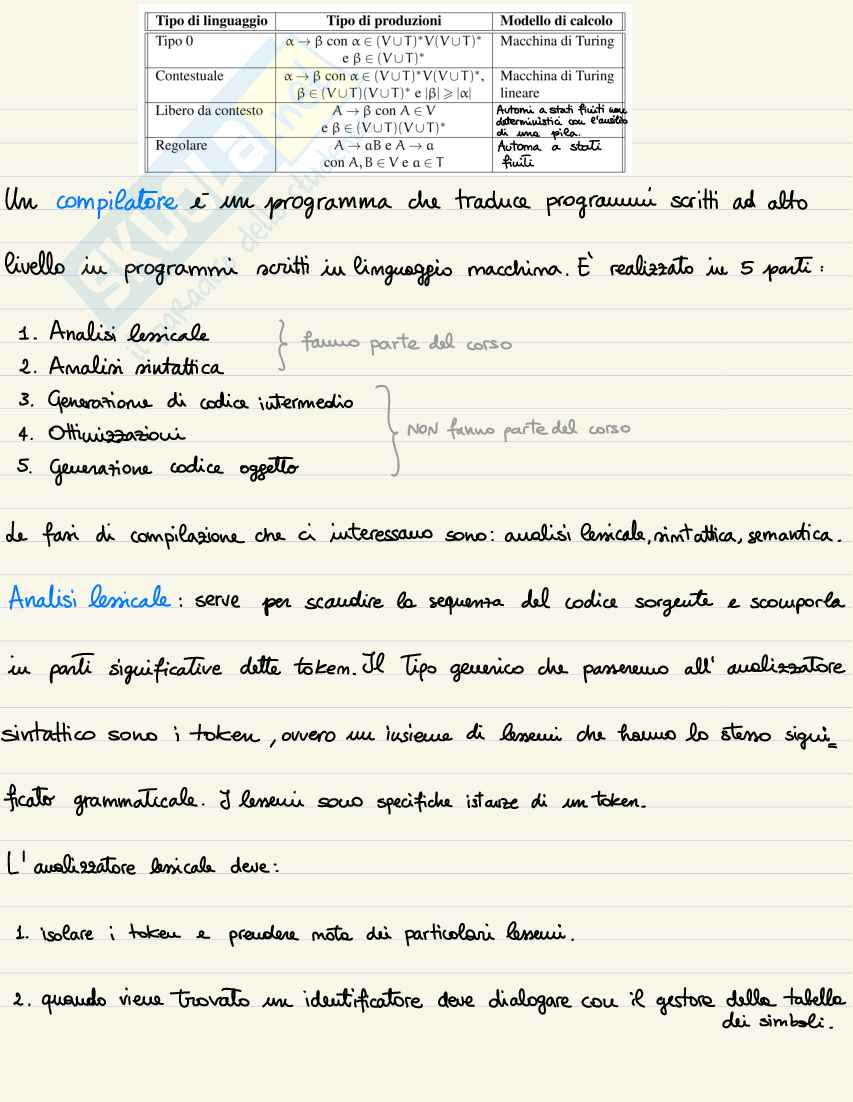 Tipo di linguaggio Tipo di produzioni Modello di calcolo
Tipo 0 α → β con α ∈ (V∪T)*V(V∪T)* Macchina di Turing
e β ∈ (V∪T)*
Contestuale α → β con α ∈ (V∪T)*V(V∪T)*, Macchina di Turing
β ∈ (V∪T)(V∪T)* e |β| ⩾ |α| lineare
Libero da contesto A → β con A ∈ V Automi a stati finiti non
e β ∈ (V∪T)(V∪T)* deterministici con l'ausilio
di una pila.
Regolare A → aB e A → a Automa a stati
con A, B ∈ V e a ∈ T finiti
SKUOLA.net
il paradiso dello studente
Un compilatore è un programma che traduce programmi scritti ad alto
livello in programmi scritti in linguaggio macchina. È realizzato in 5 parti:
1. Analisi lessicale
2. Analisi sintattica
fanno parte del corso
3. Generazione di codice intermedio
4. Ottimizzazioni
5. Generazione codice oggetto
NON fanno parte del corso
Le fasi di compilazione che ci interessano sono: analisi lessicale, sintattica, semantica.
Analisi lessicale: serve per scandire la sequenza del codice sorgente e scomporla
in parti significative dette token. Il Tipo generico che passeremo all'analizzatore
sintattico sono i token, ovvero un insieme di lessemi che hanno lo stesso signi=
ficato grammaticale. I lessemi sono specifiche istanze di un token.
L'analizzatore lessicale deve:
1. isolare i token e prendere nota dei particolari lessemi.
2. quando viene trovato un identificatore deve dialogare con il gestore della tabella
dei simboli.